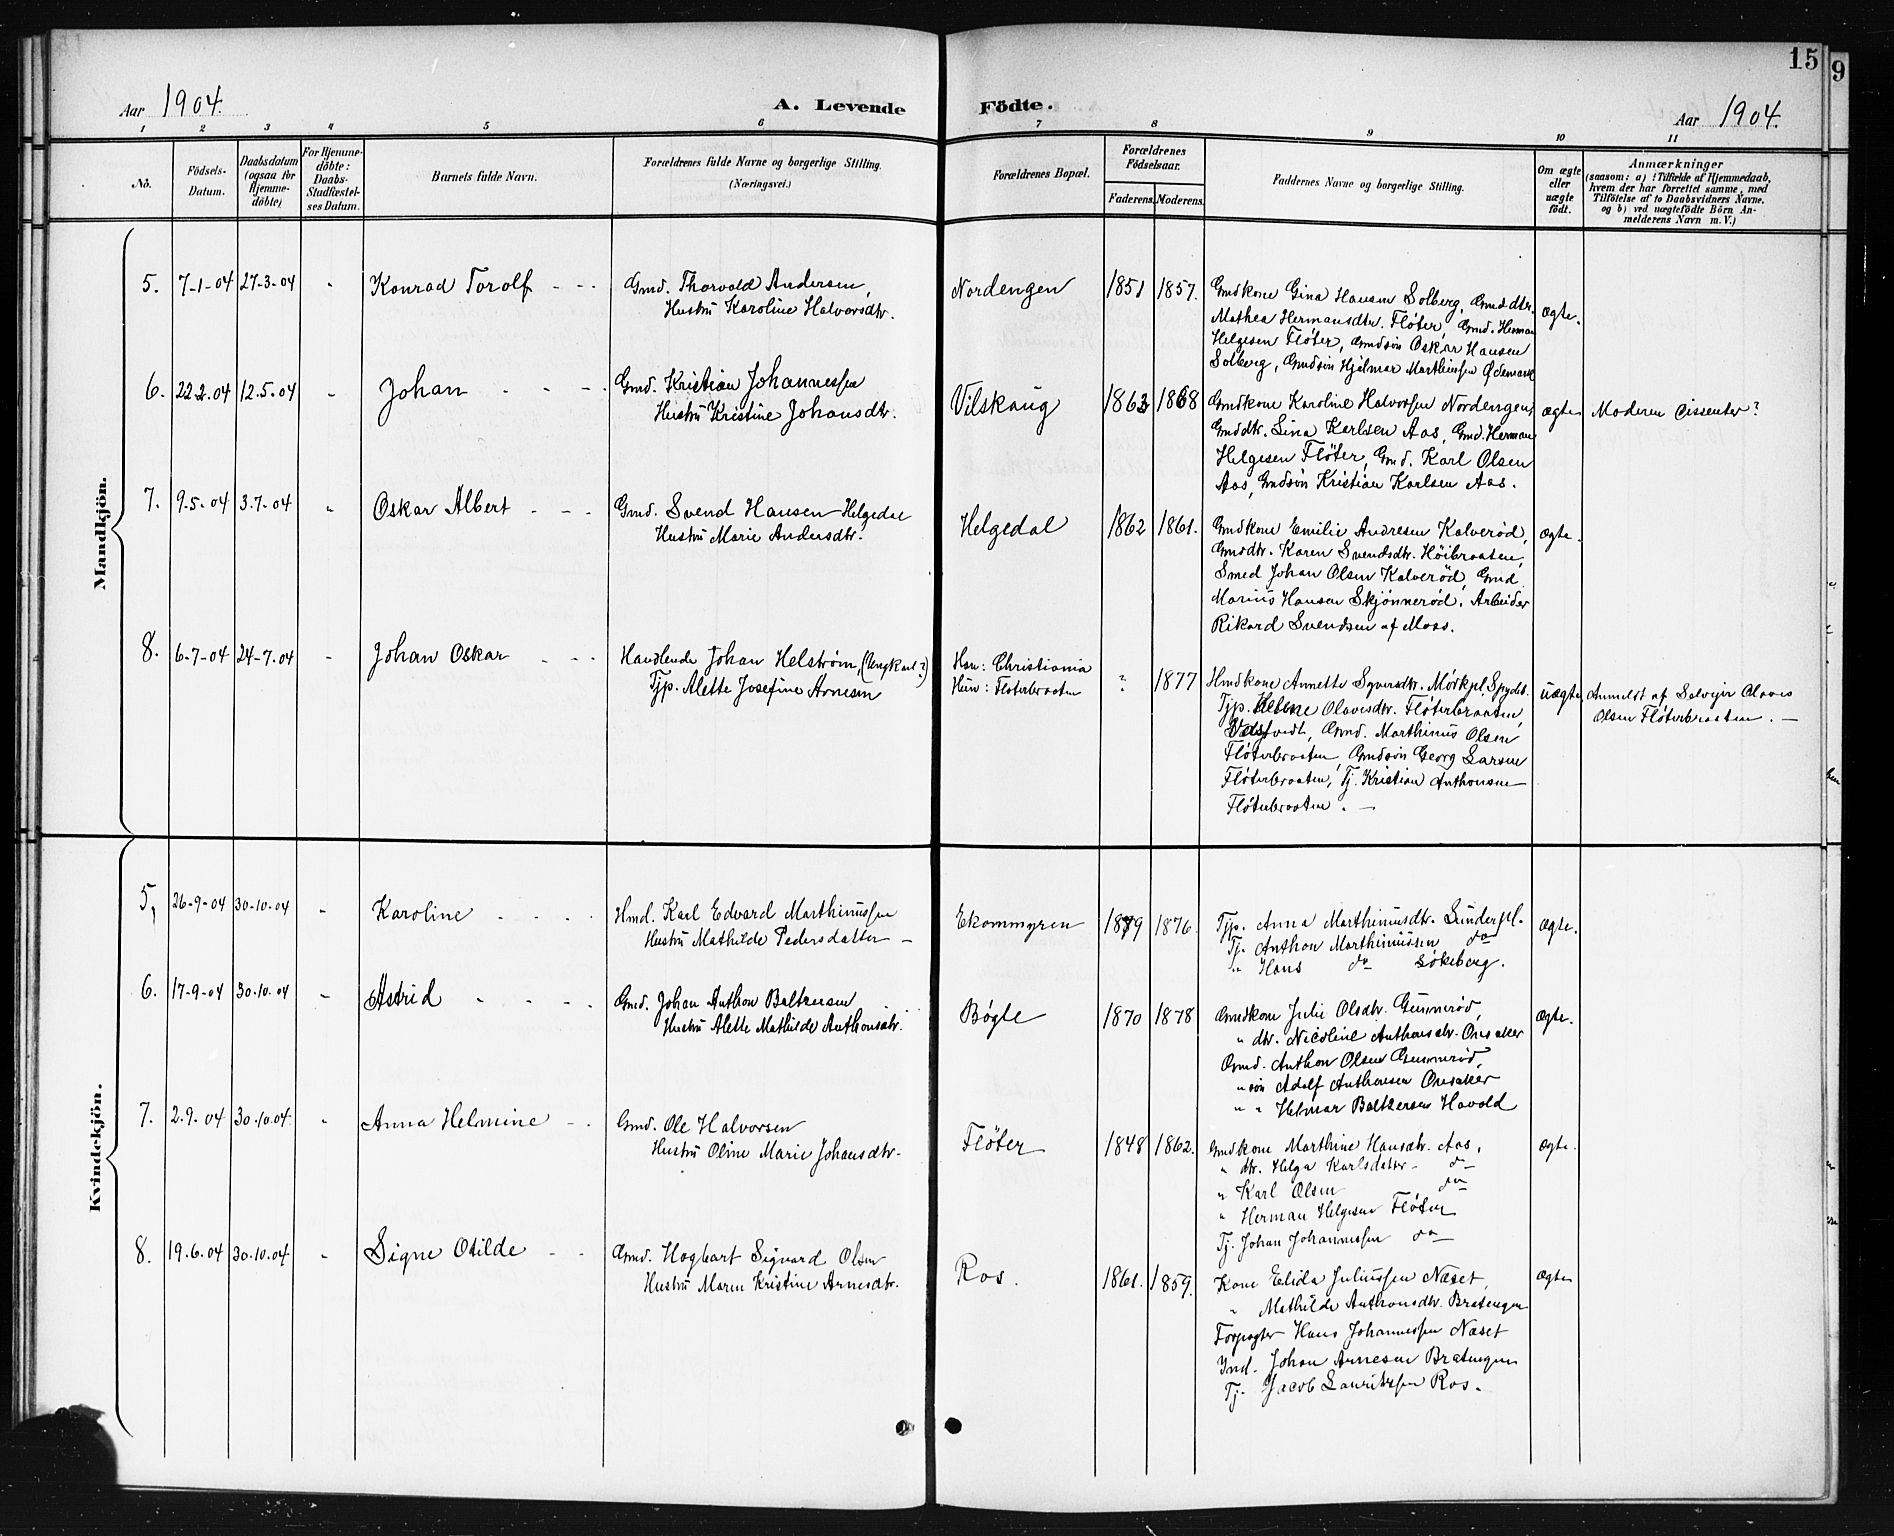 15
9
Aar 1904.
A. Levende Födte.
Aar 1904.
1 2 3 4 5 6 7 8 9 10 11
No.
Födsels-Datum.
Daabsdatum (ogsaa for Hjemme-döbte)
For Hjemme-döbte: Daabs-Stadfæstel-ses Datum.
Barnets fulde Navn.
Forældrenes fulde Navne og borgerlige Stilling.
(Næringsvei.)
Forældrenes Bopæl.
Forældrenes Födselsaar.
Faderens. Moderens.
Faddernes Navne og borgerlige Stilling.
Om ægte eller uægte födt.
Anmærkninger
(saasom: a) i Tilfælde af Hjemmedaab,
hvem der har forrettet samme, med
Tilföielse af to Daabsvidners Navne.
og b) ved uægtefödte Börn An-
melderens Navn m. V.)
Mandkjön.
5. 7-1-04 27-3-04 " Konrad Torolf - - - Gmd. Thorvald Andersen, Nordengen 1851 1857. Gmdkone Gina Hansen Solberg, Gmddtr. ægte.
Hustru Karoline Halvorsdtr. Mathea Hermansdtr. Fløter, Gmd. Herman
Helgesen Fløter, Gmdsøn Oskar Hansen
Solberg, Gmdsøn Hjalmar Marthinsen Ødemark
6. 22.2.04 12.5.04 " Johan - - - Gmd. Kristian Johannessen Vilskaug 1863 1868 Gmdkone Karoline Halvorsen Nordengen, ægte Moderen dissenter?
Hustru Kristine Johansdtr. Gmddtr. Lina Karlsen Aas, Gmd. Herman
Helgesen Fløter, Gmd. Karl Olsen
Aas, Gmdsøn Kristian Karlsen Aas.
7. 9-5-04 3-7-04 " Oskar Albert - - - Gmd. Svend Hansen Helgedal Helgedal 1862 1861. Gmdkone Emilie Andresen Kalverød, ægte.
Hustru Marie Andersdtr. Gmddtr. Karen Svendsdtr. Høibraaten,
Smed Johan Olsen Kalverød, Gmd.
Marius Hansen Skjønnerød, Arbeider
Rikard Svendsen af Moss.
8. 6-7-04 24-7-04 " Johan Oskar - - - Handlende Johan Helstrøm, (Ungkarl?) Han: Christiania ? 1877 Hmdkone Annette Syversdtr. Mørkpl. Spydeb. uægte Anmeldt af Selveier Olaves
Tjp. Alette Josefine Arnesen Hun: Fløterbraaten Tjp. Helene Olavesdtr. Fløterbraaten, Olsen Fløterbraaten. -
Gmd. Marthinus Olsen
Fløterbraaten, Gmdsøn Georg Larsen
Fløterbraaten, Tj. Kristian Anthonsen
Fløterbraaten. -
Kvindekjön.
5, 26-9-04 30-10-04 " Karoline - - - - Hmd. Karl Edvard Marthinussen Ekommyren 1879 1876. Tjp. Anna Marthinusdtr. Sunderpl. ægte.
Hustru Mathilde Pedersdatter - Tj. Anthon Marthinussen do
" Hans do Løkeberg.
6. 17-9-04 30-10-04 " Astrid - - - - Gmd. Johan Anthon Baltzersen Bøgle 1870 1878 Gmdkone Julie Olsdtr. Gunnerød, ægte.
Hustru Alette Mathilde Anthonsdtr. " dtr. Nicoline Anthonsdtr. Onsaker
Gmd. Anthon Olsen Gunnerød,
" søn Adolf Anthonsen Onsaker
" " Helmar Baltzersen Havold
7. 2-9-04 30-10-04 " Anna Helmine - - Gmd. Ole Halvorsen Fløter 1848 1862. Gmdkone Marthine Hansdtr. Aas, ægte.
Hustru Oline Marie Johansdtr. " dtr. Helga Karlsdatter do
" Karl Olsen do
" Herman Helgesen Fløter
Tj. Johan Johannessen do
8. 19.6.04 30.10.04 " Signe Otilde - - Gmd. Hagbart Sigvard Olsen Ros. 1861. 1859. Kone Elida Juliussen Næset, ægte
Hustru Maren Kristine Arnesdtr. " Mathilde Anthonsdtr. Bratengen
Forpagter Hans Johannessen Næset
Ind. Johan Arnesen Bratengen
Tj. Jacob Lauritssen Ros.